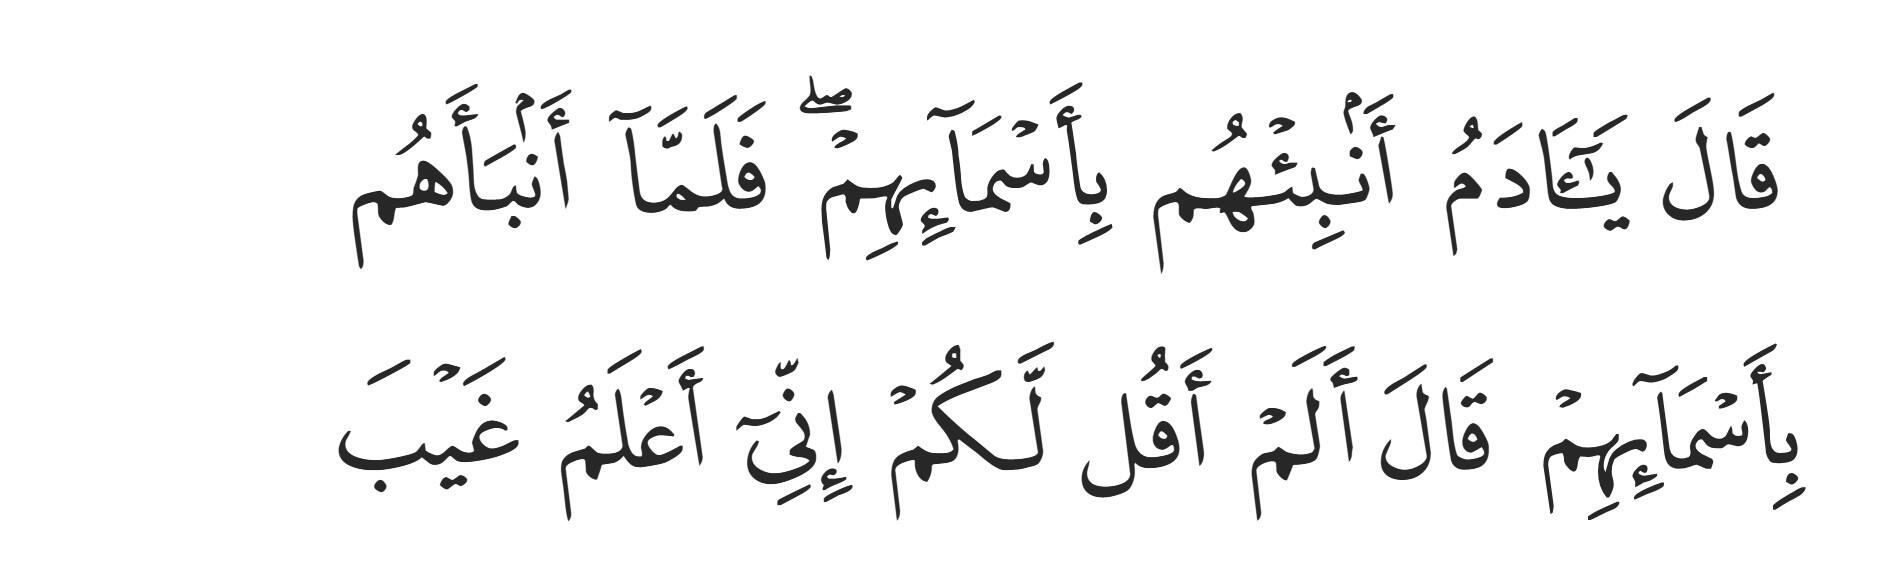 قَالَ يَـٰٓـَٔادَمُ أَنۢبِئْهُم بِأَسْمَآئِهِمْ ۖ فَلَمَّآ أَنۢبَأَهُم
بِأَسْمَآئِهِمْ قَالَ أَلَمْ أَقُل لَّكُمْ إِنِّىٓ أَعْلَمُ غَيْبَ